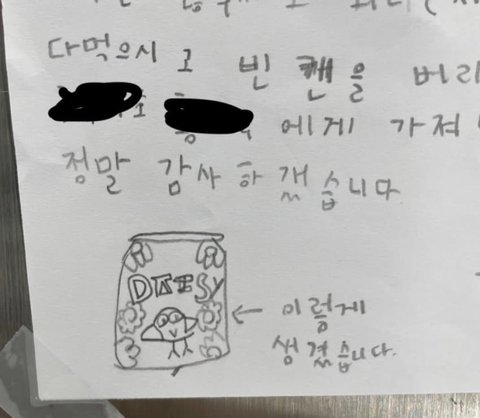 다먹으시고 빈 캔을 버리
에게 가져
정말 감사하겠습니다
이렇게
생겼습니다.